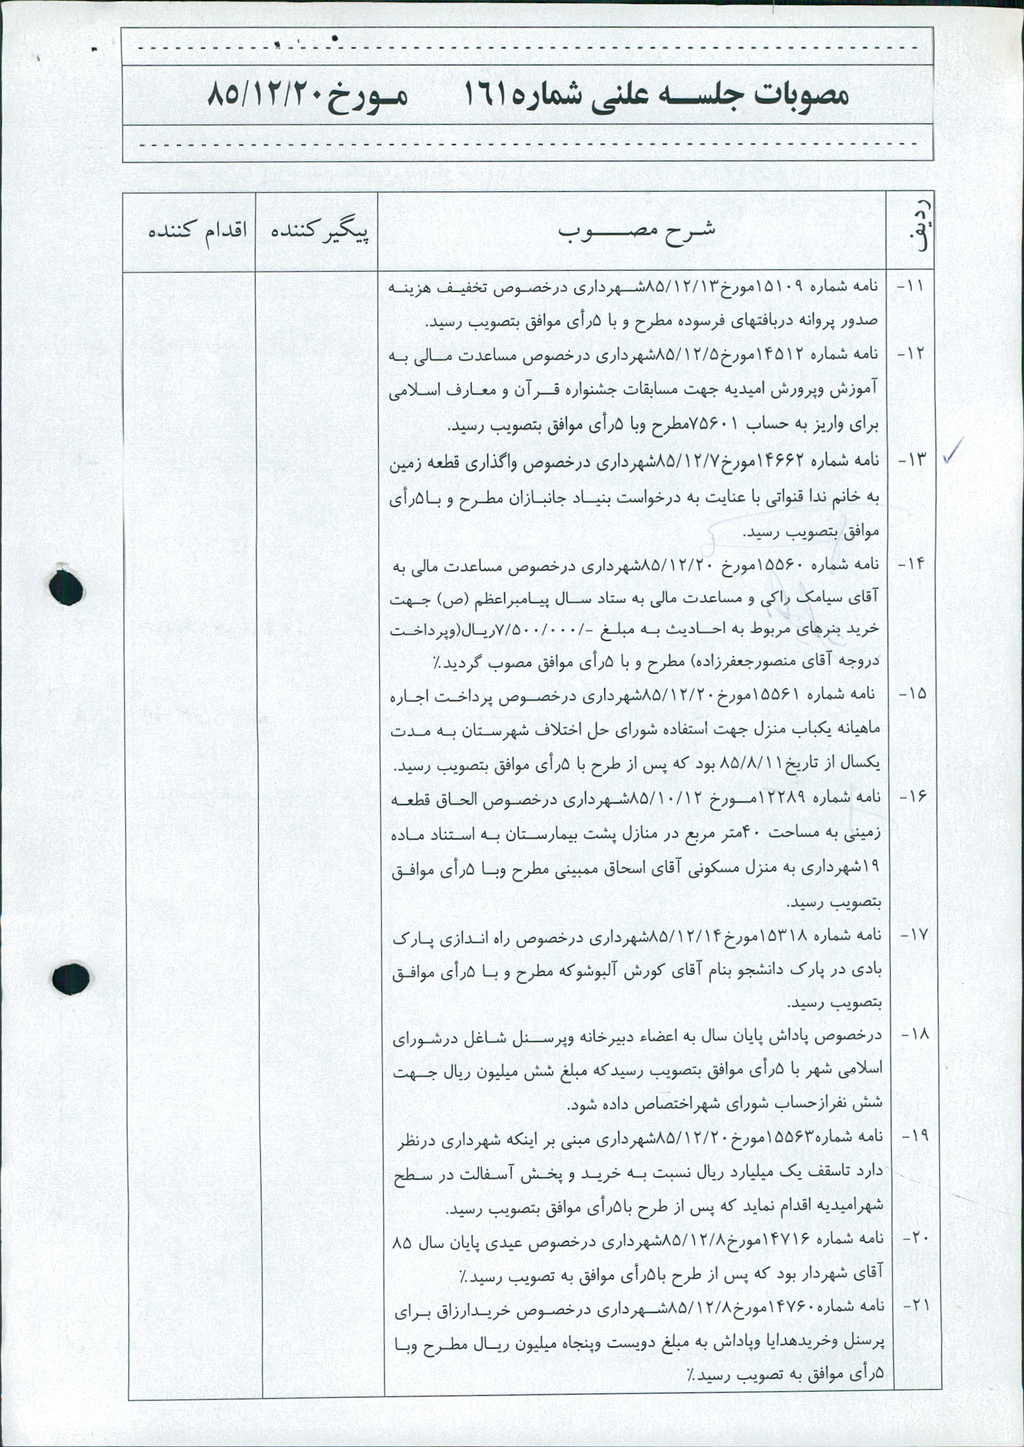 مصوبات جلسه علنی شماره ۱۶۱ مورخ ۸۵/۱۲/۲۰
ردیف شرح مصوب پیگیر کننده اقدام کننده
۱۱- نامه شماره ۱۵۱۰۹مورخ۸۵/۱۲/۱۳شهرداری درخصوص تخفیف هزینه
صدور پروانه دربافتهای فرسوده مطرح و با ۵رأی موافق بتصویب رسید.
۱۲- نامه شماره ۱۴۵۱۲مورخ۸۵/۱۲/۵شهرداری درخصوص مساعدت مالی به
آموزش وپرورش امیدیه جهت مسابقات جشنواره قرآن و معارف اسلامی
برای واریز به حساب ۷۵۶۰۱مطرح وبا ۵رأی موافق بتصویب رسید.
۱۳- نامه شماره ۱۴۶۶۲مورخ۸۵/۱۲/۷شهرداری درخصوص واگذاری قطعه زمین
به خانم ندا قنواتی با عنایت به درخواست بنیاد جانبازان مطرح و با۵رأی
موافق بتصویب رسید.
۱۴- نامه شماره ۱۵۵۶۰مورخ ۸۵/۱۲/۲۰شهرداری درخصوص مساعدت مالی به
آقای سیامک راکی و مساعدت مالی به ستاد سال پیامبراعظم (ص) جهت
خرید بنرهای مربوط به احادیث به مبلغ -/۷/۵۰۰/۰۰۰ریال(وپرداخت
دروجه آقای منصورجعفرزاده) مطرح و با ۵رأی موافق مصوب گردید.٪
۱۵- نامه شماره ۱۵۵۶۱مورخ۸۵/۱۲/۲۰شهرداری درخصوص پرداخت اجاره
ماهیانه یکباب منزل جهت استفاده شورای حل اختلاف شهرستان به مدت
یکسال از تاریخ۸۵/۸/۱۱ بود که پس از طرح با ۵رأی موافق بتصویب رسید.
۱۶- نامه شماره ۱۲۲۸۹مورخ ۸۵/۱۰/۱۲شهرداری درخصوص الحاق قطعه
زمینی به مساحت ۴۰متر مربع در منازل پشت بیمارستان به استناد ماده
۱۹شهرداری به منزل مسکونی آقای اسحاق ممبینی مطرح وبا ۵رأی موافق
بتصویب رسید.
۱۷- نامه شماره ۱۵۳۱۸مورخ۸۵/۱۲/۱۴شهرداری درخصوص راه اندازی پارک
بادی در پارک دانشجو بنام آقای کورش آلبوشوکه مطرح و با ۵رأی موافق
بتصویب رسید.
۱۸- درخصوص پاداش پایان سال به اعضاء دبیرخانه وپرسنل شاغل درشورای
اسلامی شهر با ۵رأی موافق بتصویب رسیدکه مبلغ شش میلیون ریال جهت
شش نفرازحساب شورای شهراختصاص داده شود.
۱۹- نامه شماره۱۵۵۶۳مورخ۸۵/۱۲/۲۰شهرداری مبنی بر اینکه شهرداری درنظر
دارد تاسقف یک میلیارد ریال نسبت به خرید و پخش آسفالت در سطح
شهرامیدیه اقدام نماید که پس از طرح با۵رأی موافق بتصویب رسید.
۲۰- نامه شماره ۱۴۷۱۶مورخ۸۵/۱۲/۸شهرداری درخصوص عیدی پایان سال ۸۵
آقای شهردار بود که پس از طرح با۵رأی موافق به تصویب رسید.٪
۲۱- نامه شماره۱۴۷۶۰مورخ۸۵/۱۲/۸شهرداری درخصوص خریدارزاق برای
پرسنل وخریدهدایا وپاداش به مبلغ دویست وپنجاه میلیون ریال مطرح وبا
۵رأی موافق به تصویب رسید.٪